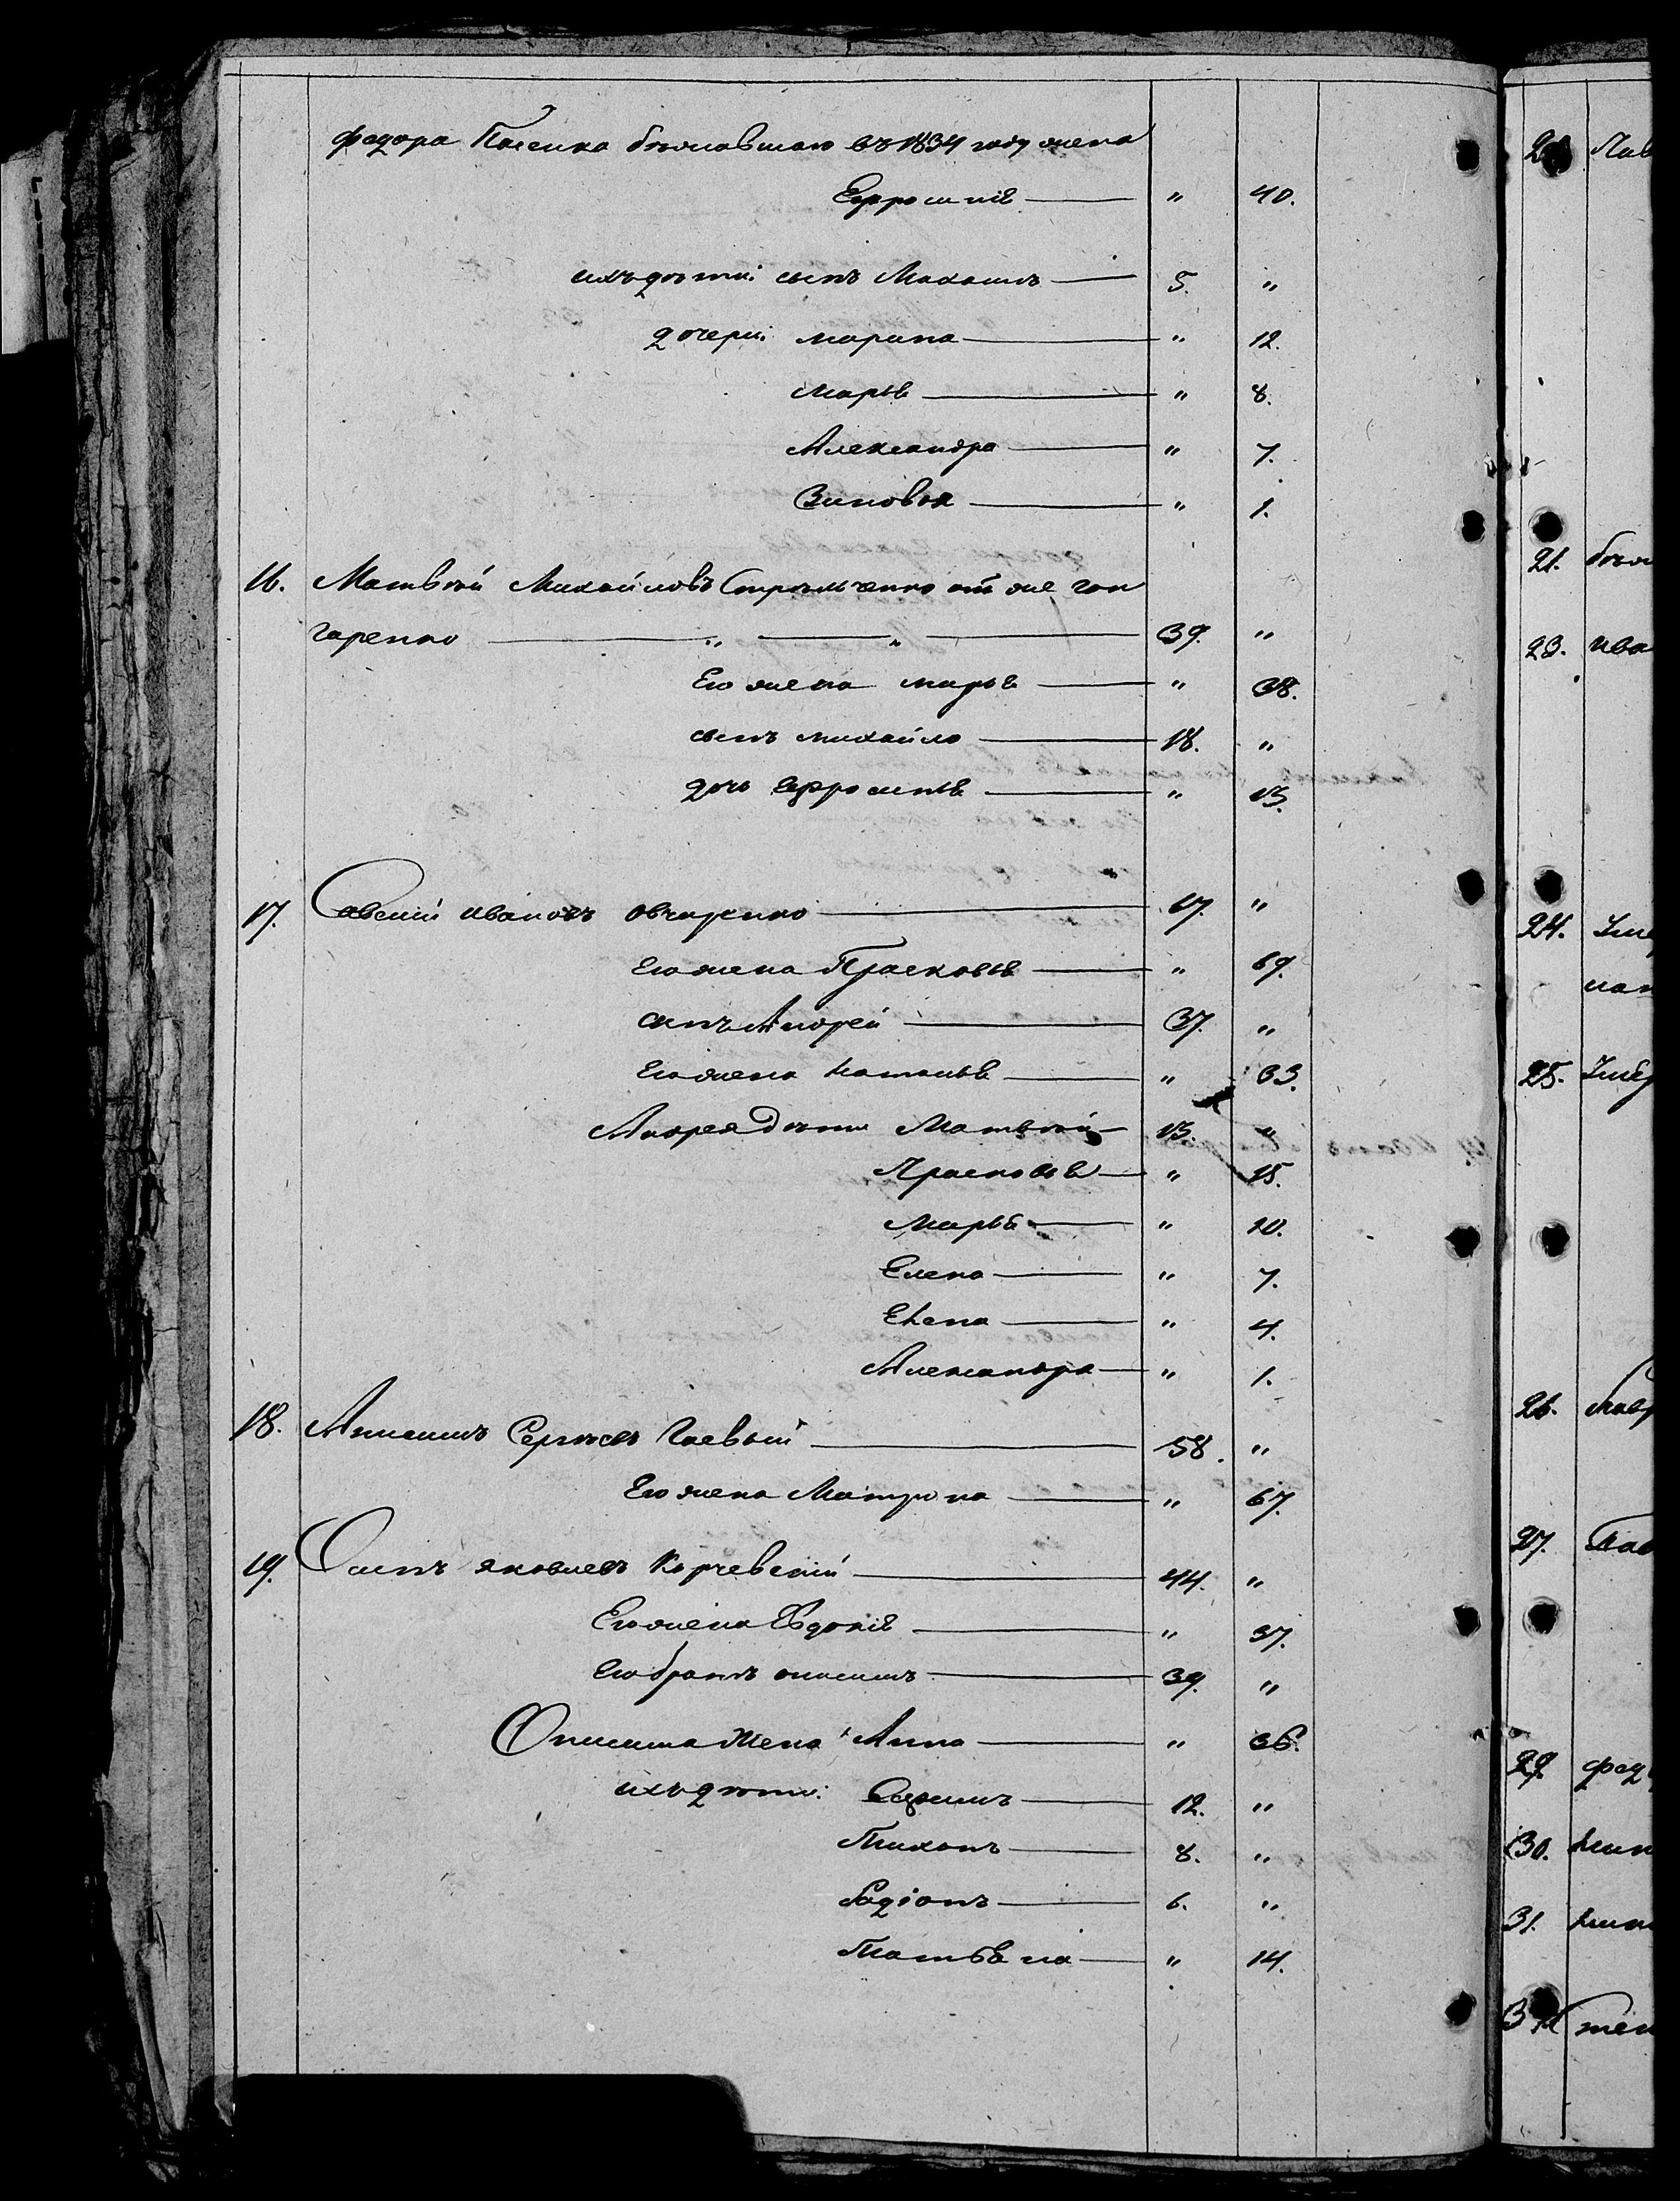 Федора Пасенка бежавшаго въ 1834 году жена
Ефросинія — " 40.
ихъ дѣти: сынъ Михаилъ — 5. "
дочери: марина — " 12.
Марья — " 8.
Александра — " 7.
Зиновья — " 1.
16. Матвѣй Михайловъ Стрѣльченко онъ же Гон
чаренко — " — " — 39. "
Его жена марья — " 38.
сынъ михайло — 18. "
дочь Ефросинья — " 13.
17. Савелій ивановъ овчаренко — 67. "
Его жена Прасковья — " 69.
сынъ Андрей — 37. "
Его жена Наталья — " 33.
Андрея Дѣти Матвѣй — 13. "
Прасковья — " 15.
Марья — " 10.
Елена — " 7.
Елена — " 4.
Александра — " 1.
18. Анисимъ Сергѣевъ Гаевый — 58. "
Его жена Матрона — " 67.
19. Осипъ яковлевъ Корчевскій — 44. "
Его жена Евдокія — " 37.
Его братъ онисимъ — 39. "
Онисима Жена Анна — " 36.
ихъ дѣти: Евфимъ — 12. "
Тихонъ — 8. "
Родіонъ — 6. "
Татьяна — " 14.
21.
23. ива
24.
25.
26.
27.
29. фед
30.
31.